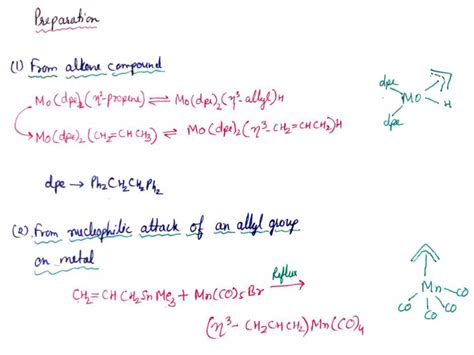 Preparation
(1) From alkene compound
Mo(dpe)₂(η²-propene) ⇌ Mo(dpe)₂(η³-allyl)H
Mo(dpe)₂(CH₂=CHCH₃) ⇌ Mo(dpe)₂(η³-CH₂=CHCH₂)H
dpe
Mo
H
dpe
dpe → Ph₂CH₂CH₂Ph₂
(2) From nucleophilic attack of an allyl group
on metal
CH₂=CHCH₂SnMe₃ + Mn(CO)₅Br Reflux →
(η³-CH₂CHCH₂)Mn(CO)₄
Mn
CO CO CO CO